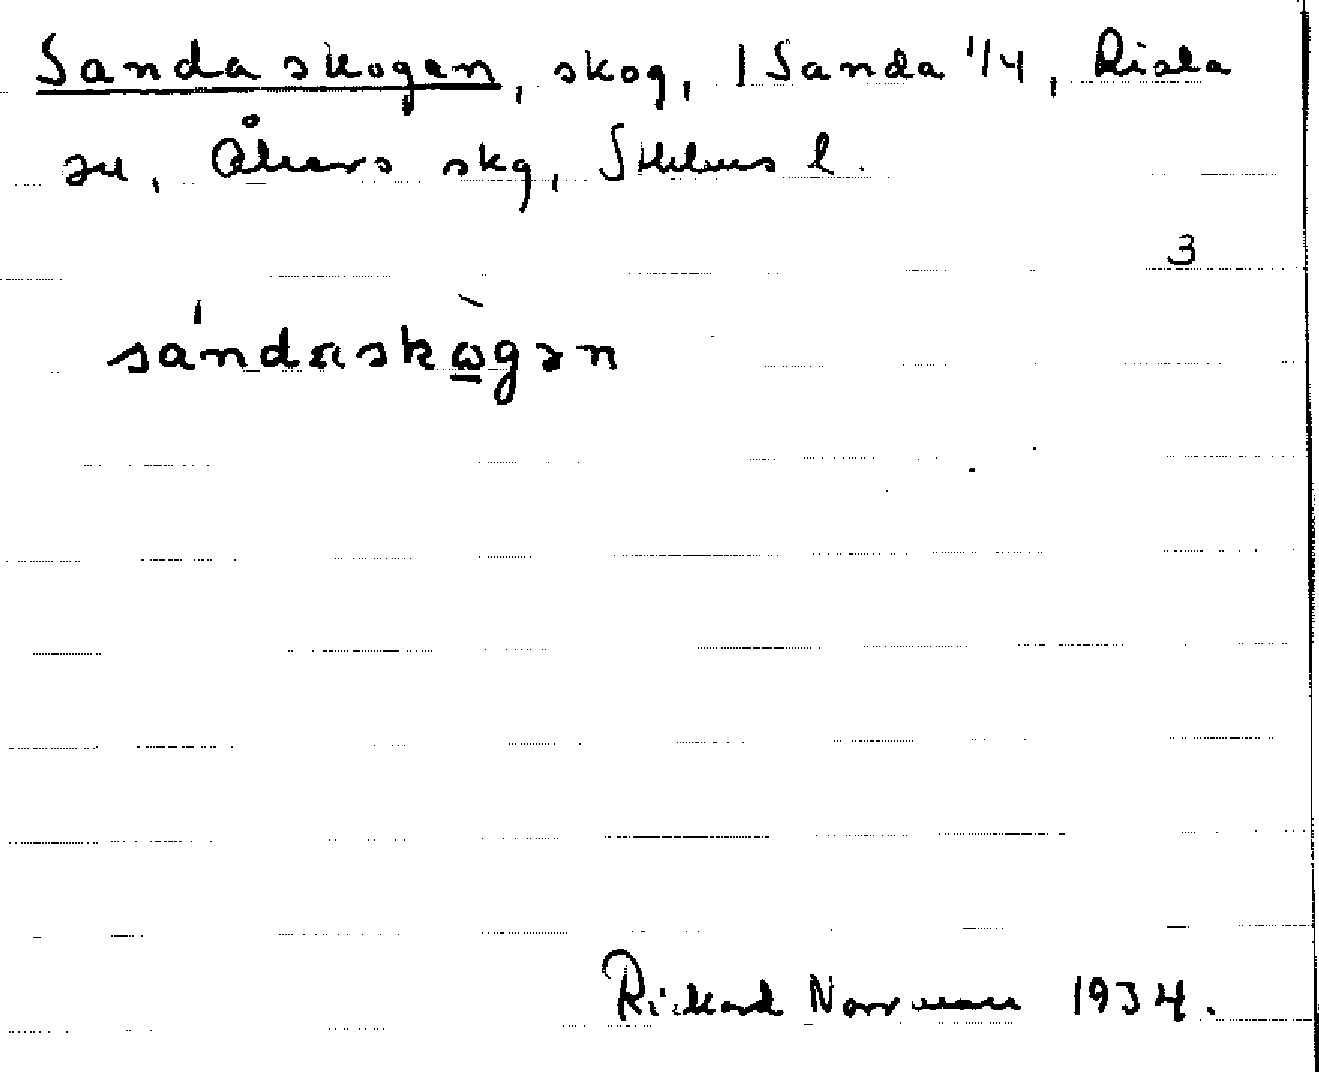 Sandaskogen, skog, 1 Sanda 1/4, Riala
sn, Åkers skg, Sthlms l.
3
sándaskògən
Rickard Norrman 1934.